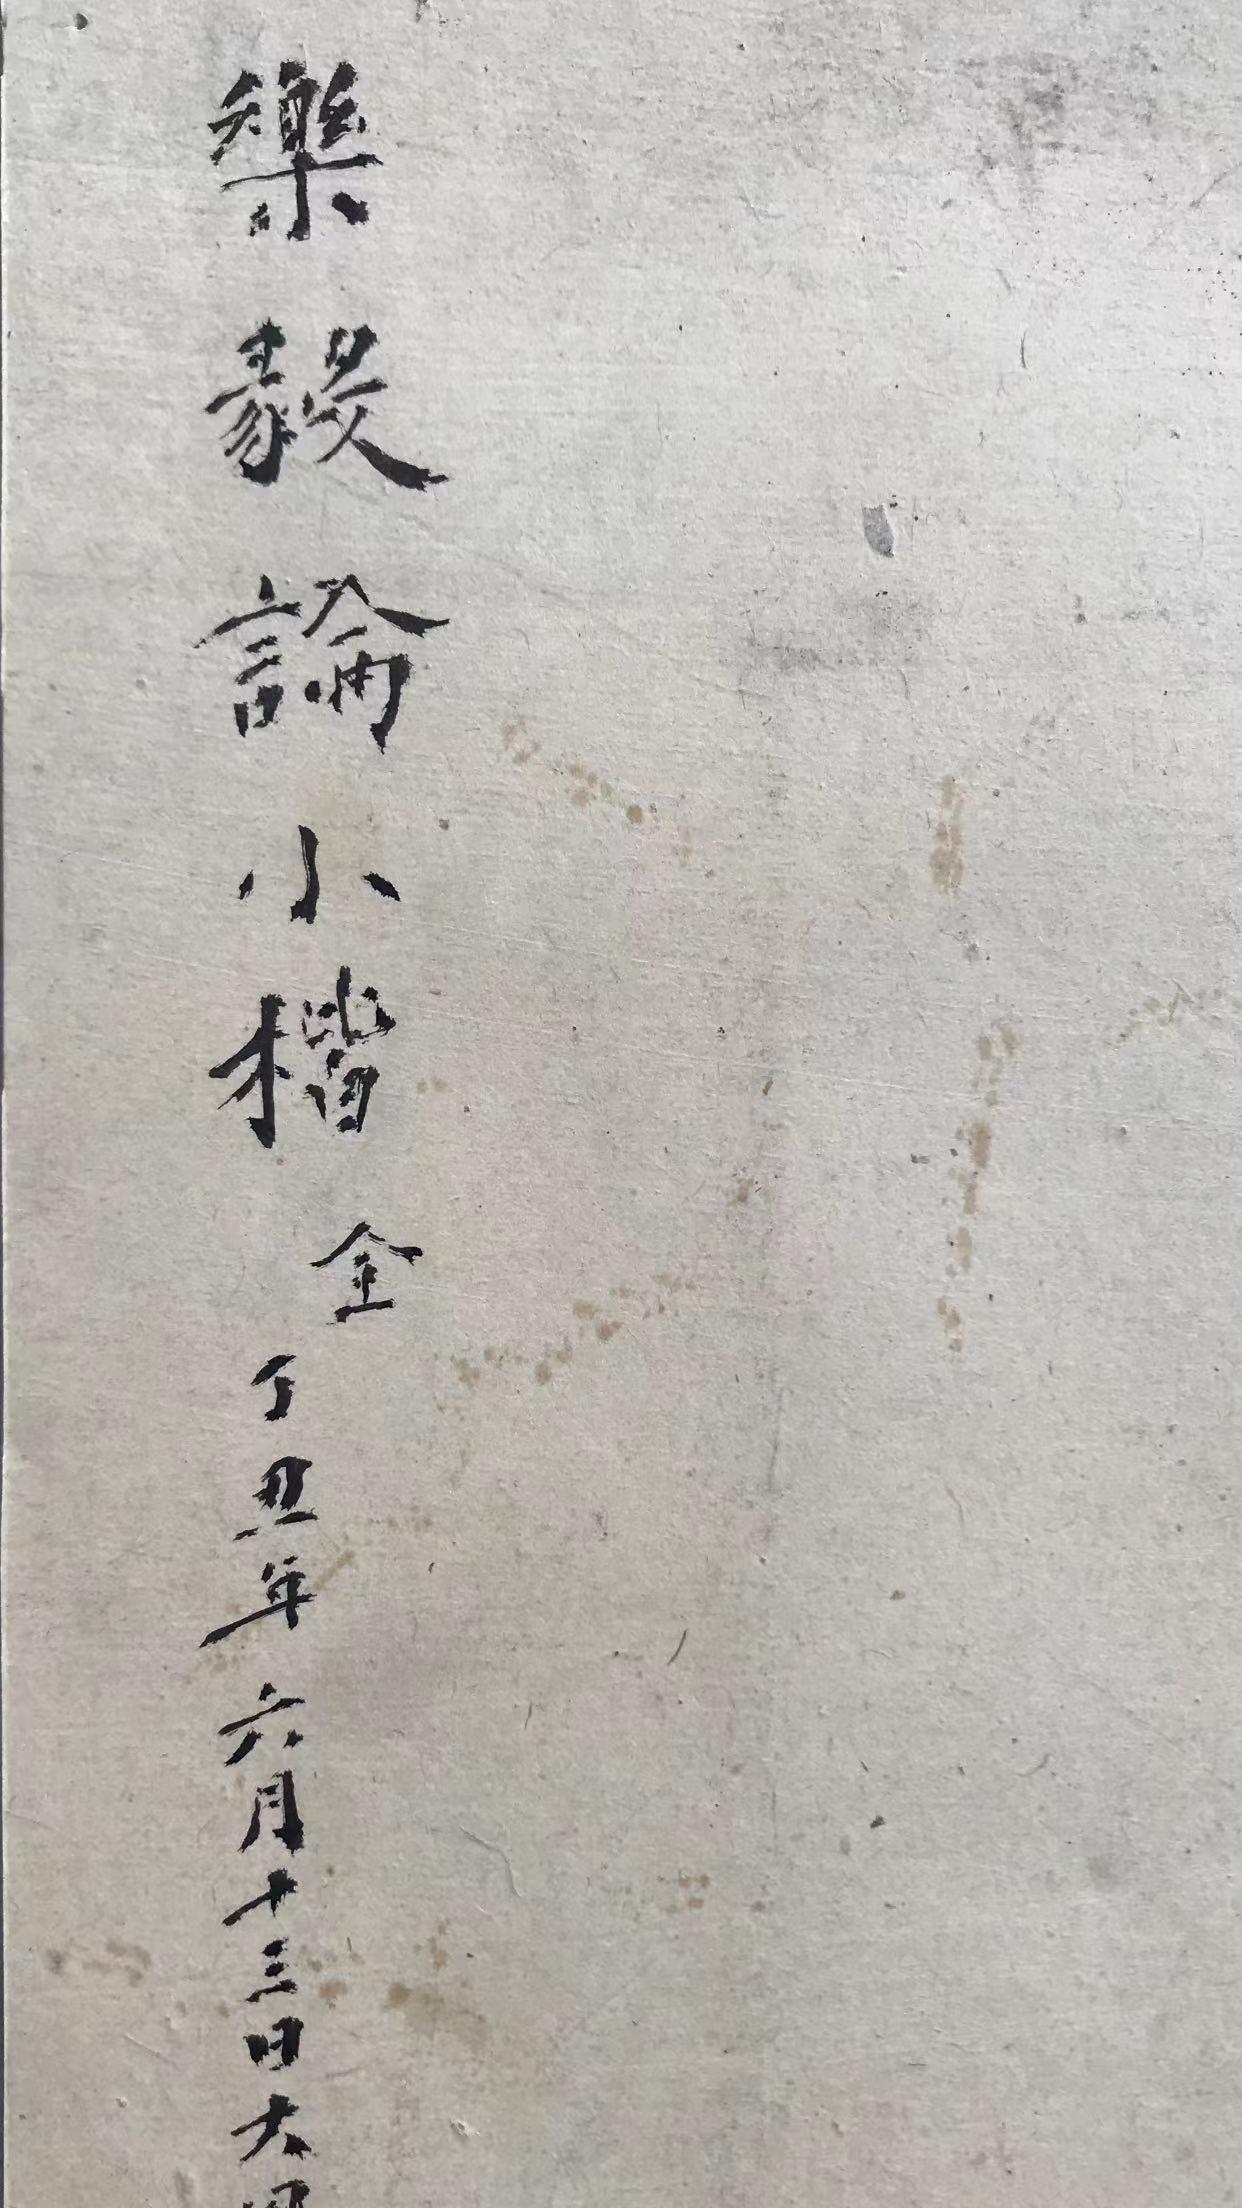 樂毅論小楷全
丁丑年六月十三日大